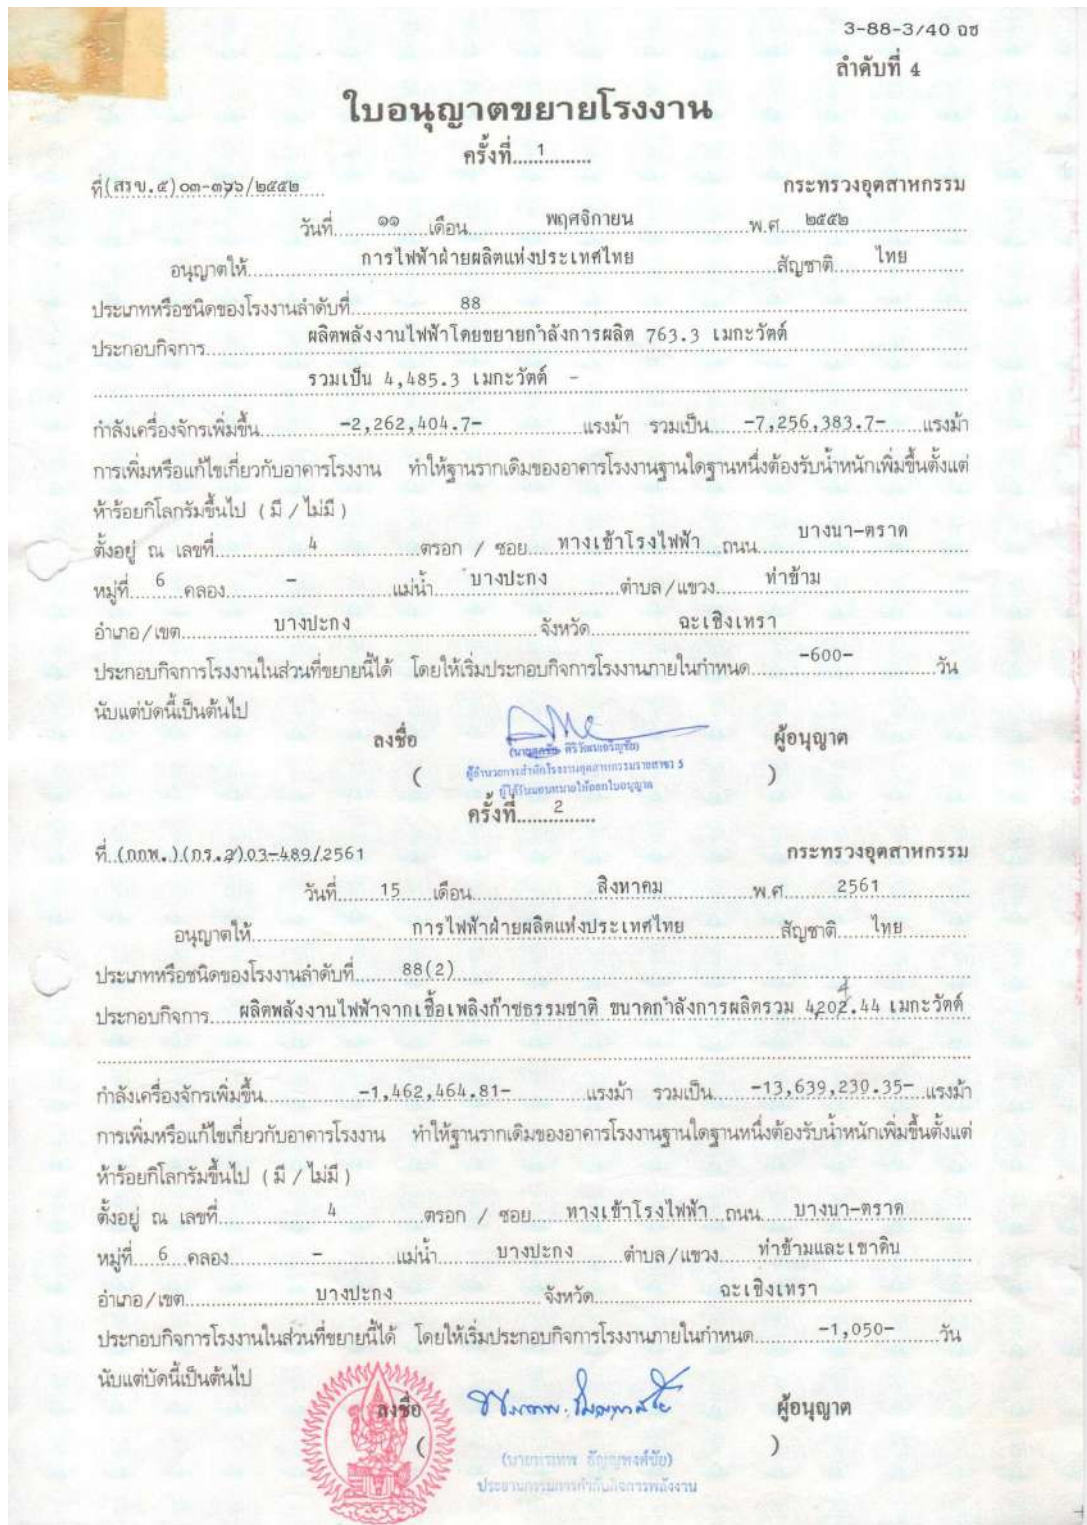 3-88-3/40 ฉช
ลำดับที่ 4
ใบอนุญาตขยายโรงงาน
ครั้งที่.....1.........
ที่(สรข.๕)๐๓-๓๖๖/๒๕๕๒
กระทรวงอุตสาหกรรม
วันที่ ๑๑ เดือน พฤศจิกายน พ.ศ. ๒๕๕๒
อนุญาตให้ การไฟฟ้าฝ่ายผลิตแห่งประเทศไทย สัญชาติ ไทย
ประเภทหรือชนิดของโรงงานลำดับที่ 88
ประกอบกิจการ ผลิตพลังงานไฟฟ้าโดยขยายกำลังการผลิต 763.3 เมกะวัตต์
รวมเป็น 4,485.3 เมกะวัตต์ -
กำลังเครื่องจักรเพิ่มขึ้น -2,262,404.7- แรงม้า รวมเป็น -7,256,383.7- แรงม้า
การเพิ่มหรือแก้ไขเกี่ยวกับอาคารโรงงาน ทำให้ฐานรากเดิมของอาคารโรงงานฐานใดฐานหนึ่งต้องรับน้ำหนักเพิ่มขึ้นตั้งแต่
ห้าร้อยกิโลกรัมขึ้นไป ( มี / ไม่มี )
ตั้งอยู่ ณ เลขที่ 4 ตรอก / ซอย ทางเข้าโรงไฟฟ้า ถนน บางนา-ตราด
หมู่ที่ 6 คลอง - แม่น้ำ บางปะกง ตำบล/แขวง ท่าข้าม
อำเภอ/เขต บางปะกง จังหวัด ฉะเชิงเทรา
ประกอบกิจการโรงงานในส่วนที่ขยายนี้ได้ โดยให้เริ่มประกอบกิจการโรงงานภายในกำหนด -600- วัน
นับแต่บัดนี้เป็นต้นไป
ลงชื่อ ผู้อนุญาต
( )
ผู้อำนวยการสำนักโรงงานอุตสาหกรรมรายสาขา 5
ผู้ได้รับมอบหมายให้ออกใบอนุญาต
ครั้งที่ 2
ที่ (กกพ.)(กร.2)03-489/2561
กระทรวงอุตสาหกรรม
วันที่ 15 เดือน สิงหาคม พ.ศ. 2561
อนุญาตให้ การไฟฟ้าฝ่ายผลิตแห่งประเทศไทย สัญชาติ ไทย
ประเภทหรือชนิดของโรงงานลำดับที่ 88(2)
ประกอบกิจการ ผลิตพลังงานไฟฟ้าจากเชื้อเพลิงก๊าซธรรมชาติ ขนาดกำลังการผลิตรวม 4,202.44 เมกะวัตต์
กำลังเครื่องจักรเพิ่มขึ้น -1,462,464.81- แรงม้า รวมเป็น -13,639,230.35- แรงม้า
การเพิ่มหรือแก้ไขเกี่ยวกับอาคารโรงงาน ทำให้ฐานรากเดิมของอาคารโรงงานฐานใดฐานหนึ่งต้องรับน้ำหนักเพิ่มขึ้นตั้งแต่
ห้าร้อยกิโลกรัมขึ้นไป ( มี / ไม่มี )
ตั้งอยู่ ณ เลขที่ 4 ตรอก / ซอย ทางเข้าโรงไฟฟ้า ถนน บางนา-ตราด
หมู่ที่ 6 คลอง - แม่น้ำ บางปะกง ตำบล/แขวง ท่าข้ามและเขาดิน
อำเภอ/เขต บางปะกง จังหวัด ฉะเชิงเทรา
ประกอบกิจการโรงงานในส่วนที่ขยายนี้ได้ โดยให้เริ่มประกอบกิจการโรงงานภายในกำหนด -1,050- วัน
นับแต่บัดนี้เป็นต้นไป
ลงชื่อ ผู้อนุญาต
( )
ประธานกรรมการกำกับกิจการพลังงาน